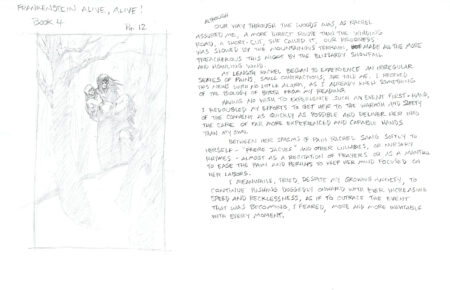 FRANKENSTEIN ALIVE, ALIVE!
Book 4
Pg. 12
ALTHOUGH
OUR WAY THROUGH THE WOODS WAS, AS RACHEL
ASSURED ME, A MORE DIRECT ROUTE THAN THE WINDING
ROAD, A SHORT-CUT, SHE CALLED IT, OUR PROGRESS
WAS SLOWED BY THE MOUNTAINOUS TERRAIN, MADE ALL THE MORE
TREACHEROUS THIS NIGHT BY THE BLIZZARDY SNOWFALL
AND HOWLING WIND.
AT LENGTH, RACHEL BEGAN TO EXPERIENCE AN IRREGULAR
SERIES OF PAINS, SMALL CONTRACTIONS, SHE TOLD ME. I RECEIVED
THIS NEWS WITH NO LITTLE ALARM, AS I ALREADY KNEW SOMETHING
OF THE BIOLOGY OF BIRTH FROM MY READING.
HAVING NO WISH TO EXPERIENCE SUCH AN EVENT FIRST-HAND,
I REDOUBLED MY EFFORTS TO GET HER TO THE WARMTH AND SAFETY
OF THE CONVENT AS QUICKLY AS POSSIBLE AND DELIVER HER INTO
THE CARE OF FAR MORE EXPERIENCED AND CAPABLE HANDS
THAN MY OWN.
BETWEEN HER SPASMS OF PAIN RACHEL SANG SOFTLY TO
HERSELF - "FRÈRE JACQUES" AND OTHER LULLABIES, OR NURSERY
RHYMES - ALMOST AS A RECITATION OF PRAYERS OR AS A MANTRA
TO EASE THE PAIN AND PERHAPS TO KEEP HER MIND FOCUSED ON
HER LABORS.
I, MEANWHILE, TRIED, DESPITE MY GROWING ANXIETY, TO
CONTINUE PUSHING DOGGEDLY ONWARD WITH EVER INCREASING
SPEED AND RECKLESSNESS, AS IF TO OUTRACE THE EVENT
THAT WAS BECOMING, I FEARED, MORE AND MORE INEVITABLE
WITH EVERY MOMENT.